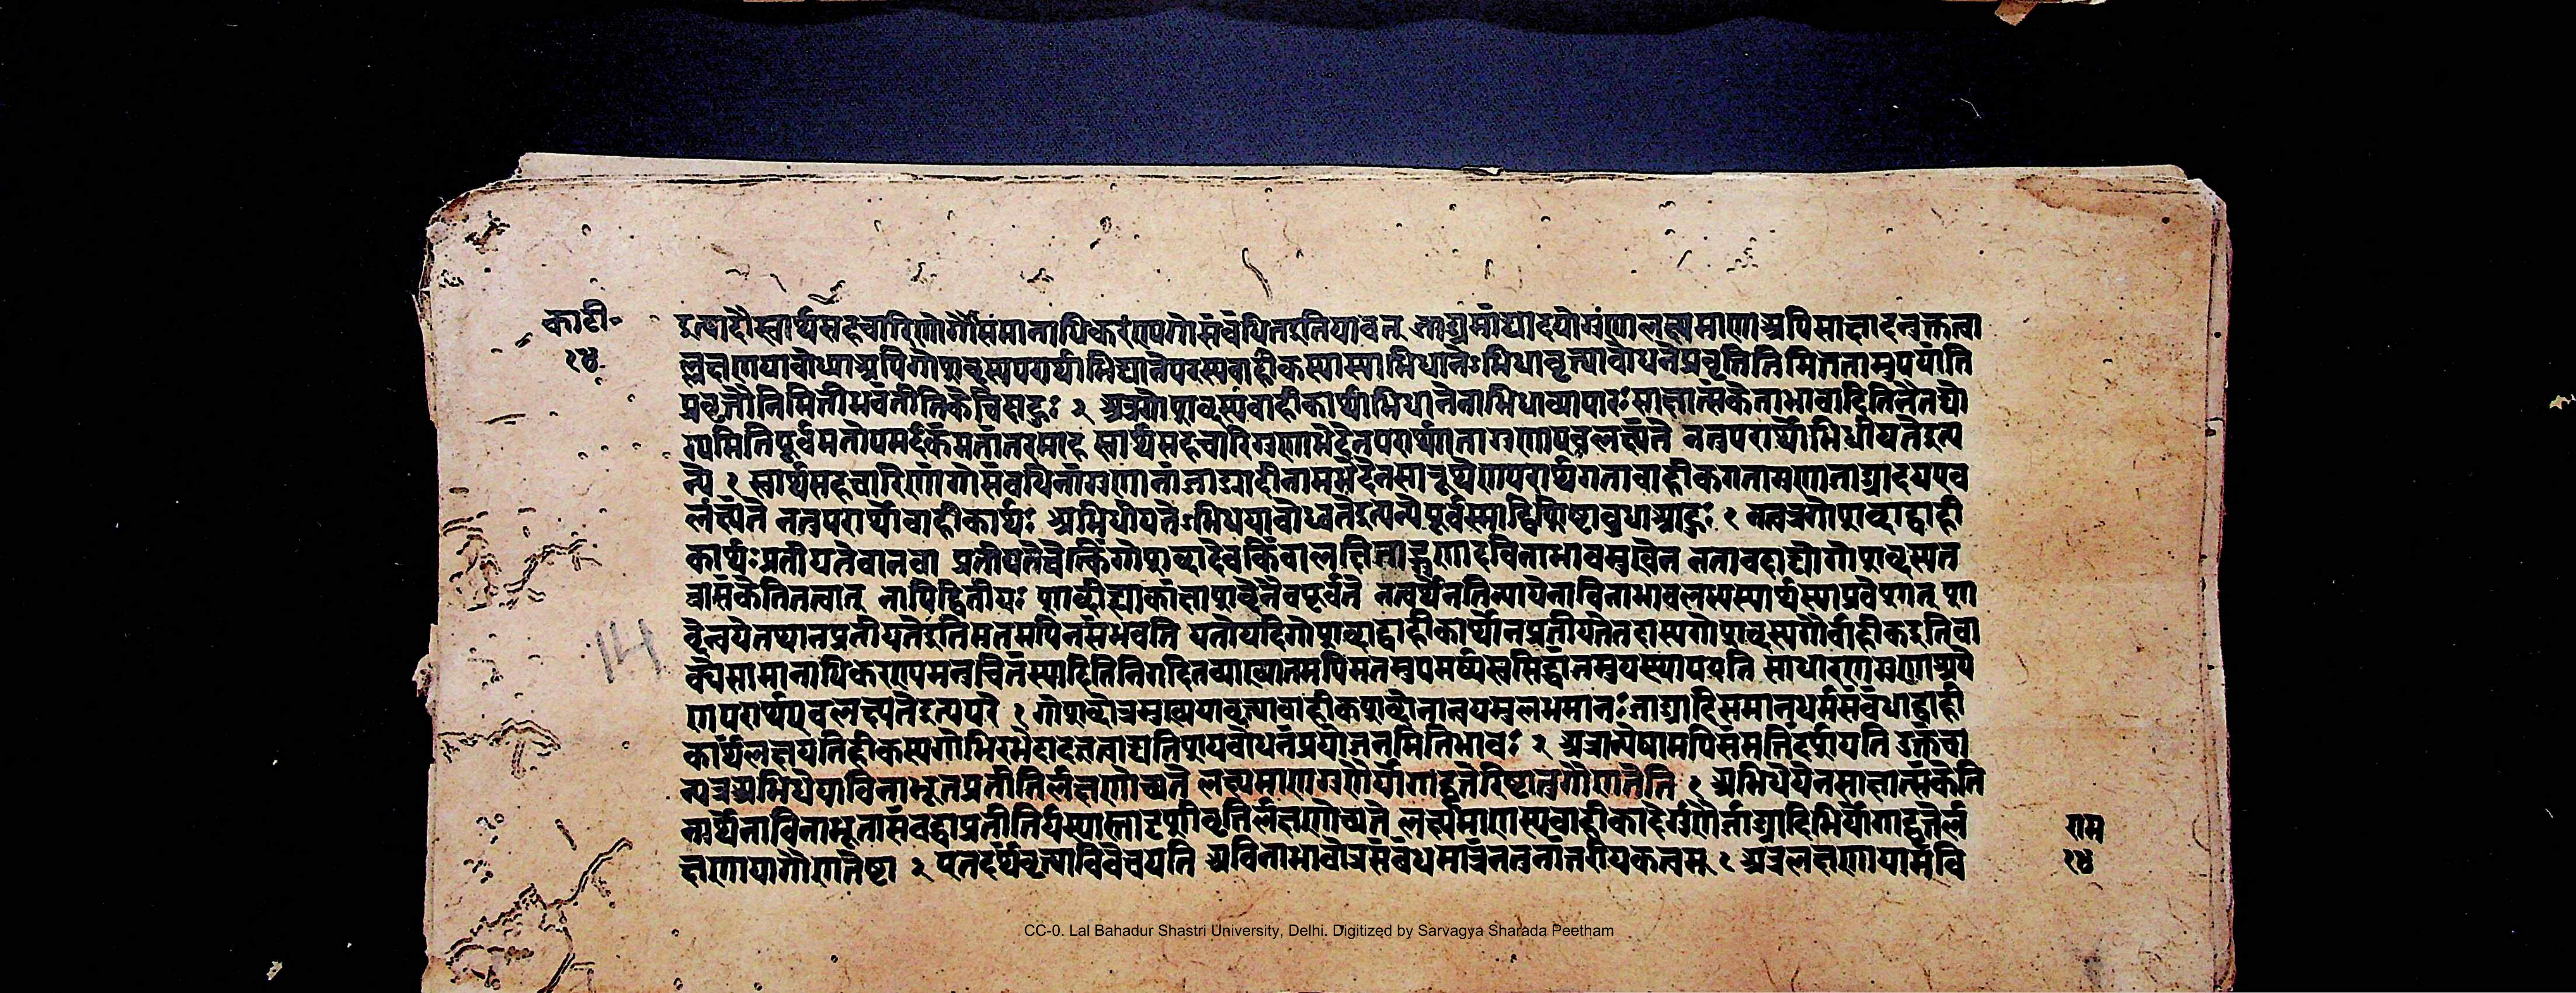 का॰टी॰
१४
इत्यादौस्वार्थसहचारिणोगोसंमानाधिकरंण्यगोसंबंधितइतियावत् जाड्यमांद्यादयोगुंणालक्ष्यमाणाअपिसाक्षादनुक्तत्वा
ल्लक्षणयाबोध्याअपिगोशब्दस्यपरार्थाभिधानेपरस्यवाहीकस्यास्याभिधानेऽभिधावृत्त्याबोधनेप्रवृत्तिनिमित्ततामुपयांति
प्रवृत्तौनिमित्तीभवंतीतिकेचिदाहुः २ अत्रगोशब्दस्यवाहीकार्थाभिधानेनाभिधाव्यापारःसाक्षात्संकेताभावादितिनैतद्यो
ग्यमितिपूर्वमतोपमर्दकंमतांतरमाह स्वार्थसहचारिगुणाभेदेनपरार्थगतागुणाएवलक्ष्यंते नतुपरार्थोभिधीयतेइत्य
न्ये १ स्वार्थसहचारिणांगोसंबंधिनांगुणानांजाड्यादीनामभेदेनसारूप्येणपरार्थगतावाहीकगतामणाजाड्यादयएव
लंक्ष्यंते नतुपरार्थोवाहीकार्थः अभिधीयतेऽभिधयाबोध्यतेइत्यन्येपूर्वस्माद्विशिष्टाबुधाआहुः १ नन्वत्रगोशब्दाद्वाही
कार्थःप्रतीयतेवानवा प्रतीयतेचेत्किंगोशब्दादेवकिंवालक्षिताद्गुणादविनाभावमुखेन नतावदाद्योगोशब्दस्यत
त्रासंकेतितत्वात् नापिद्वितीयः शाब्दीह्याकांक्षाशब्देनैवपूर्यते नत्वर्थेनतिन्यायेनाविनाभावलभ्यस्यार्थस्याप्रवेशात् शा
ब्देन्वयेनथानप्रतीयतेइतिमतमपिनसंभवति यतोयदिगोशब्दाद्वाहीकार्थोनप्रतीयतेतदास्यगोशब्दस्यगौर्वाहीकइतिवा
क्येसामानाधिकरण्यमनुचितंस्यादितिनिगदितव्याख्यातमपिमतमुपमर्द्यस्वसिद्धांतमुपस्थापयति साधारणगुणाश्रये
णपरार्थएवलक्ष्यतेइत्यपरे १ गोशब्दोत्रमुख्ययावृत्त्यावाहीकशब्देनान्वयमलभमानःजाड्यादिसमानधर्मसंबंधाद्वाही
कार्थंलक्षयतिहीकस्यगोभिरभेदादतज्जाड्यातिशयबोधनंप्रयोजनमितिभावः २ अत्रान्येषामपिसंमतिंदर्शयति उक्तंचा
न्यत्रअभिधेयाविनाभूतप्रतीतिर्लक्षणोच्यते लक्ष्यमाणगुणैर्योगाद्वृत्तेरिष्टातुगौणतेति १ अभिधेयेनसाक्षात्संकेति
तार्थेनाविनाभूतासंबद्धाप्रतीतिर्यस्यास्तादृशीवृत्तिर्लक्षणोच्यते लक्ष्यमाणस्यवाहीकादेर्गुणैर्जाड्यादिभिर्योगाद्वृत्तेर्ल
क्षणायागौणतेष्टा २ एतदर्थंवृत्त्याविवेचयति अविनाभावोत्रसंबंधमात्रंनतुनांतरीयकत्वम् १ अत्रलक्षणायामवि
राम
१४
14
CC-0. Lal Bahadur Shastri University, Delhi. Digitized by Sarvagya Sharada Peetham